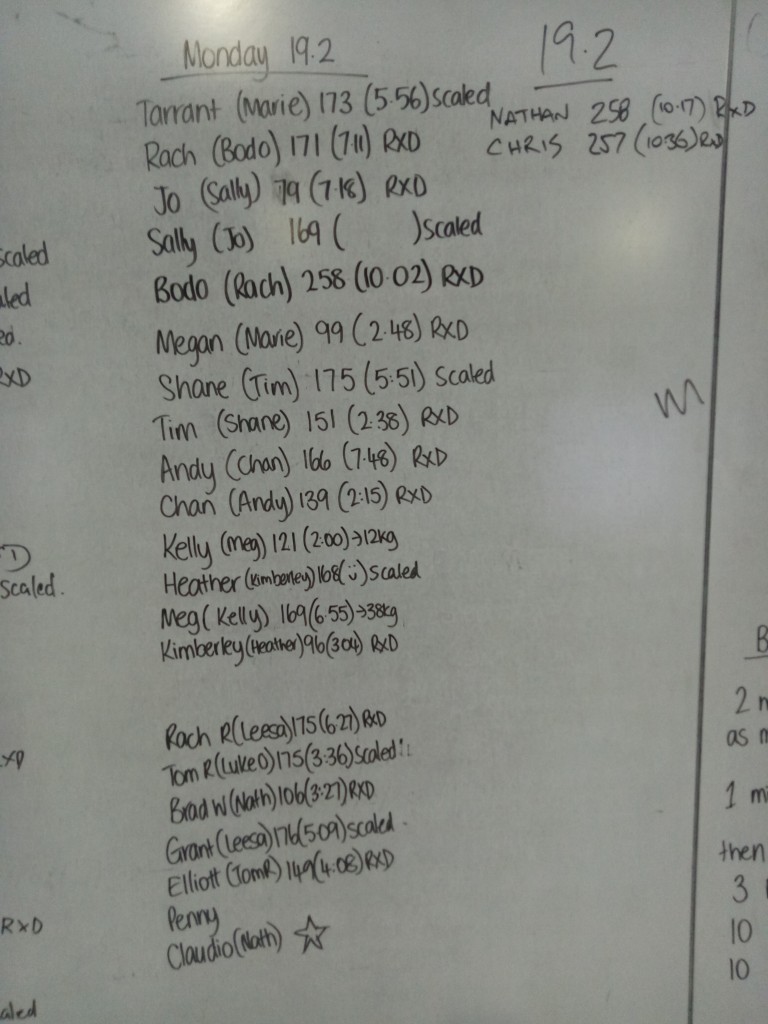 Monday 19.2
Tarrant (Marie) 173 (5.56) Scaled
Rach (Bodo) 171 (7.11) RXD
Jo (Sally) 79 (7.18) RXD
Sally (Jo) 169 ( ) Scaled
Bodo (Rach) 258 (10.02) RXD
Megan (Marie) 99 (2.48) RXD
Shane (Tim) 175 (5:51) Scaled
Tim (Shane) 151 (2:38) RXD
Andy (Chan) 166 (7.48) RXD
Chan (Andy) 139 (2:15) RXD
Kelly (Meg) 121 (2:00)→12kg
Heather (Kimberley) 168 (ü) Scaled
Meg (Kelly) 169 (6.55)→38kg
Kimberley (Heather) 96 (3.04) RXD
Rach R (Leesa) 175 (6.27) RXD
Tom R (Luke O) 175 (3:36) Scaled
Brad W (Nath) 106 (3:27) RXD
Grant (Leesa) 176 (5.09) scaled.
Elliott (Tom R) 149 (4:08) RXD
Penny
Claudio (Nath) ☆
19.2
NATHAN 258 (10.17) RXD
CHRIS 257 (10:36) RXD
scaled
RXD
scaled.
RXD
2
as
1
then
3
10
10